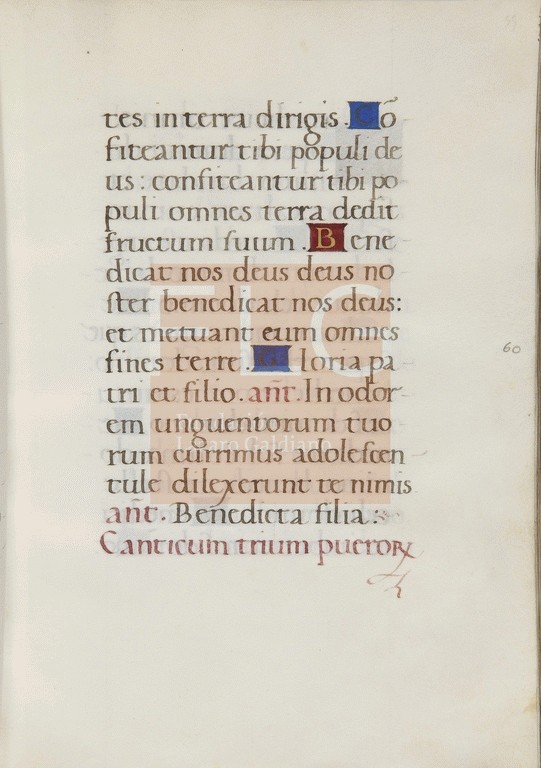 tes in terra dirigis. Cō
fiteantur tibi populi de
us: confiteantur tibi po
puli omnes terra dedit
fructum suum. Bene
dicat nos deus deus no
ster benedicat nos deus:
et metuant eum omnes
fines terre. Gloria pa
tri et filio. añt. In odor
em unguentorum tuo
rum currimus adolescen
tule dilexerunt te nimis
añt. Benedicta filia:
Canticum trium pueroꝝ
60
FLG
Fundación
Lázaro Galdiano